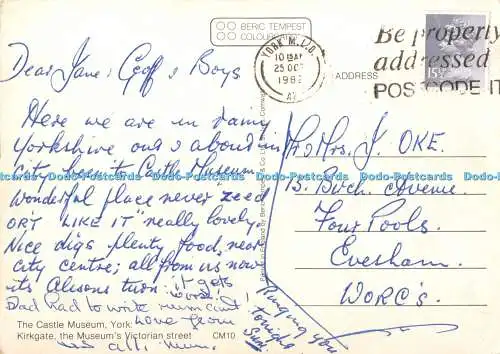 BERIC TEMPEST
COLOUR
YORK M.L.O.
10 15AM
25 OCT
1982
Be properly
addressed
POSTCODE IT
15½
ADDRESS
Dear Jane, Geoff & Boys
Here we are in rainy
Yorkshire out & about in
City
Castle Museum
Wonderful place never "zeed
ORT LIKE IT" really lovely.
Nice digs plenty food, near
city centre; all from us now
its Alisons turn: it gets
worse!
Dad had to write mum can't!
Love from
us all, Mum.
Mr & Mrs. J. OKE.
13. Birch Avenue.
Four Pools.
Evesham.
WORC'S.
Ringing you
tonight
Sun.
The Castle Museum, York:
Kirkgate, the Museum's Victorian street CM10
Dodo-Postcards Dodo-Postcards Dodo-Postcards Dodo-Postcards Dodo-Postcards